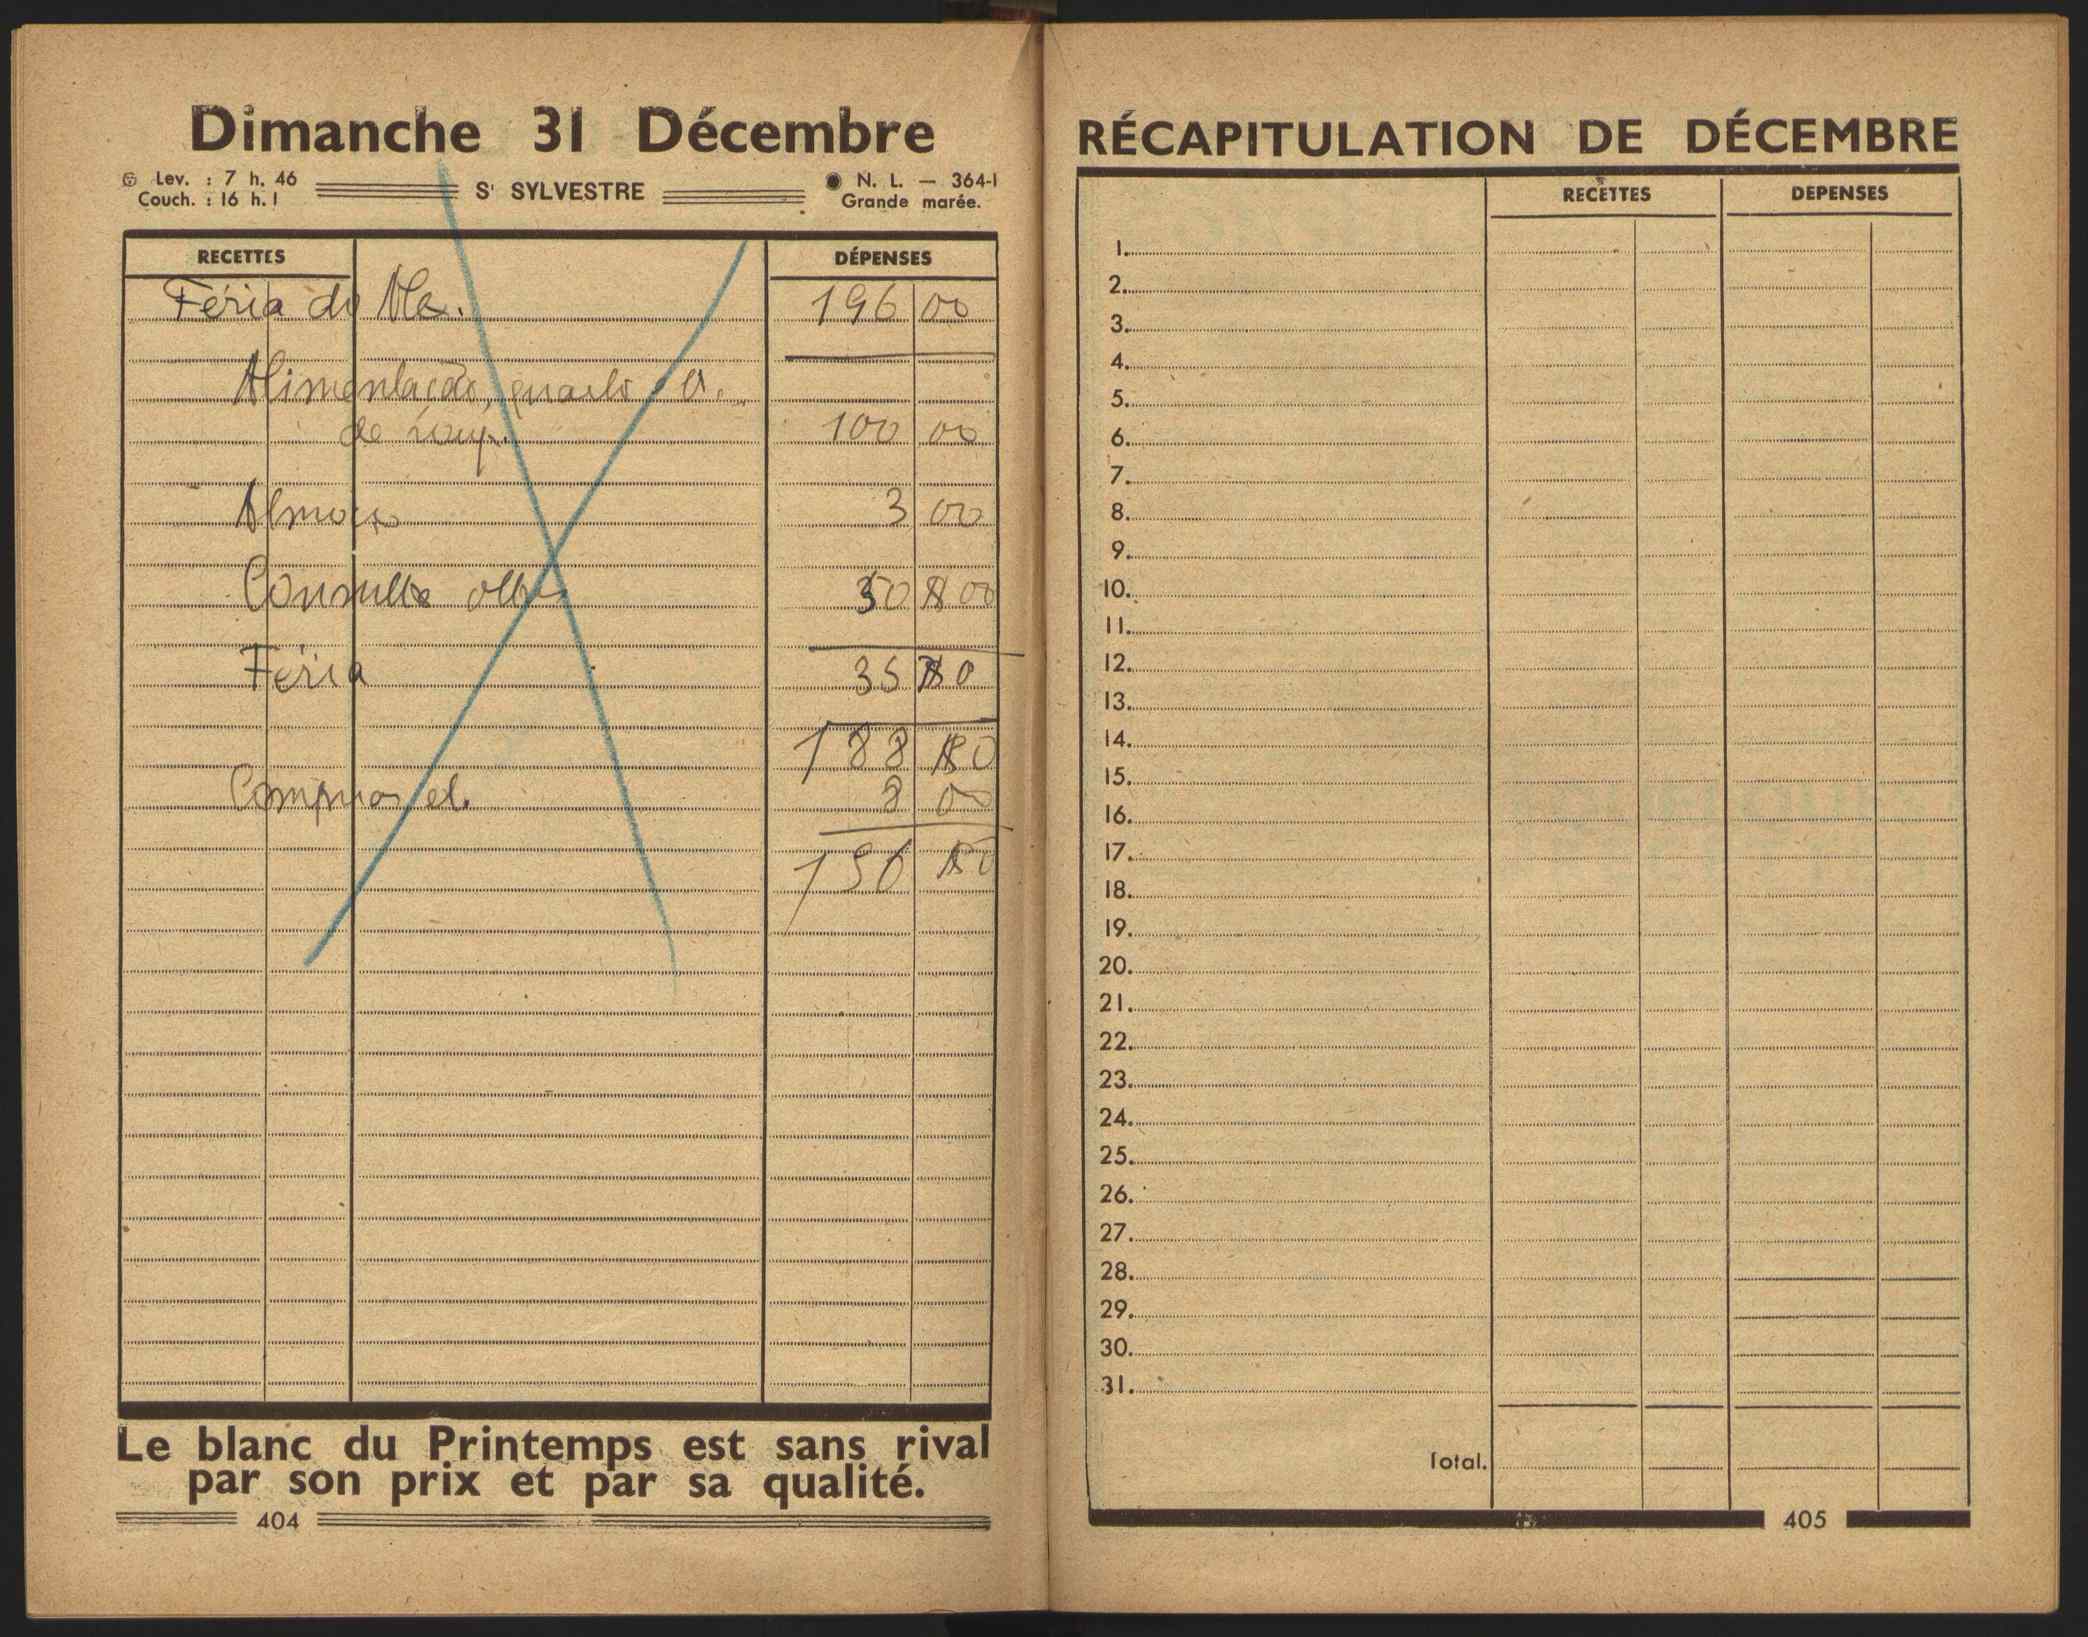 Dimanche 31 Décembre
Lev. : 7 h. 46
Couch. : 16 h. 1
St SYLVESTRE
N. L. — 364-1
Grande marée.
RECETTES DÉPENSES
Féria do 196 00
Alimentação, quarto
de roup. 100 00
Almoço 3 00
Consulta 50 00
Féria 35 80
188 80
8 00
196 80
Le blanc du Printemps est sans rival
par son prix et par sa qualité.
404
RÉCAPITULATION DE DÉCEMBRE
RECETTES DEPENSES
1.
2.
3.
4.
5.
6.
7.
8.
9.
10.
11.
12.
13.
14.
15.
16.
17.
18.
19.
20.
21.
22.
23.
24.
25.
26.
27.
28.
29.
30.
31.
Total.
405